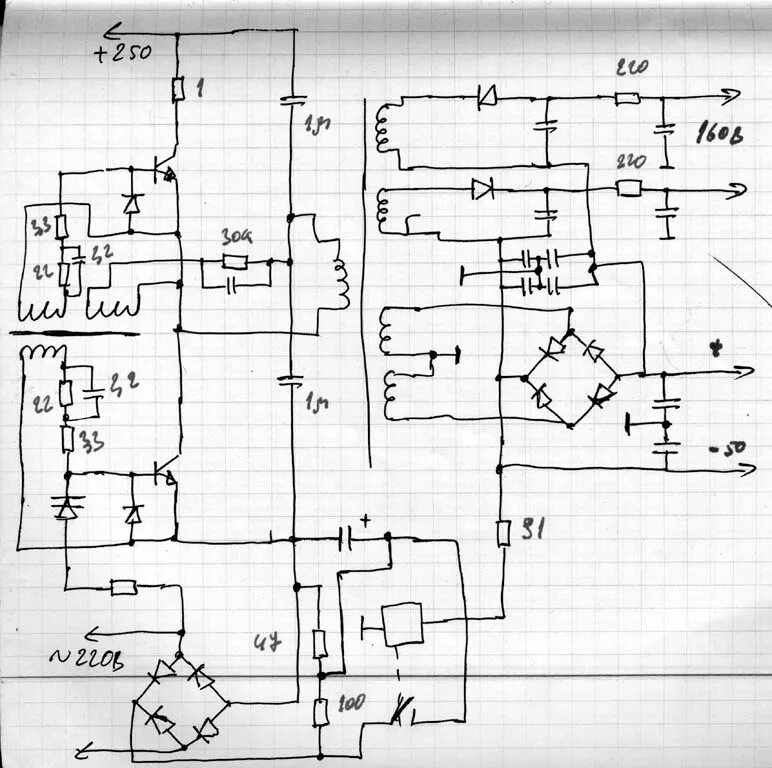 +250
1
1μ
3,3
22
2,2
300
1μ
22
2,2
3,3
~220В
47
100
220
160В
220
+
-50
91
+